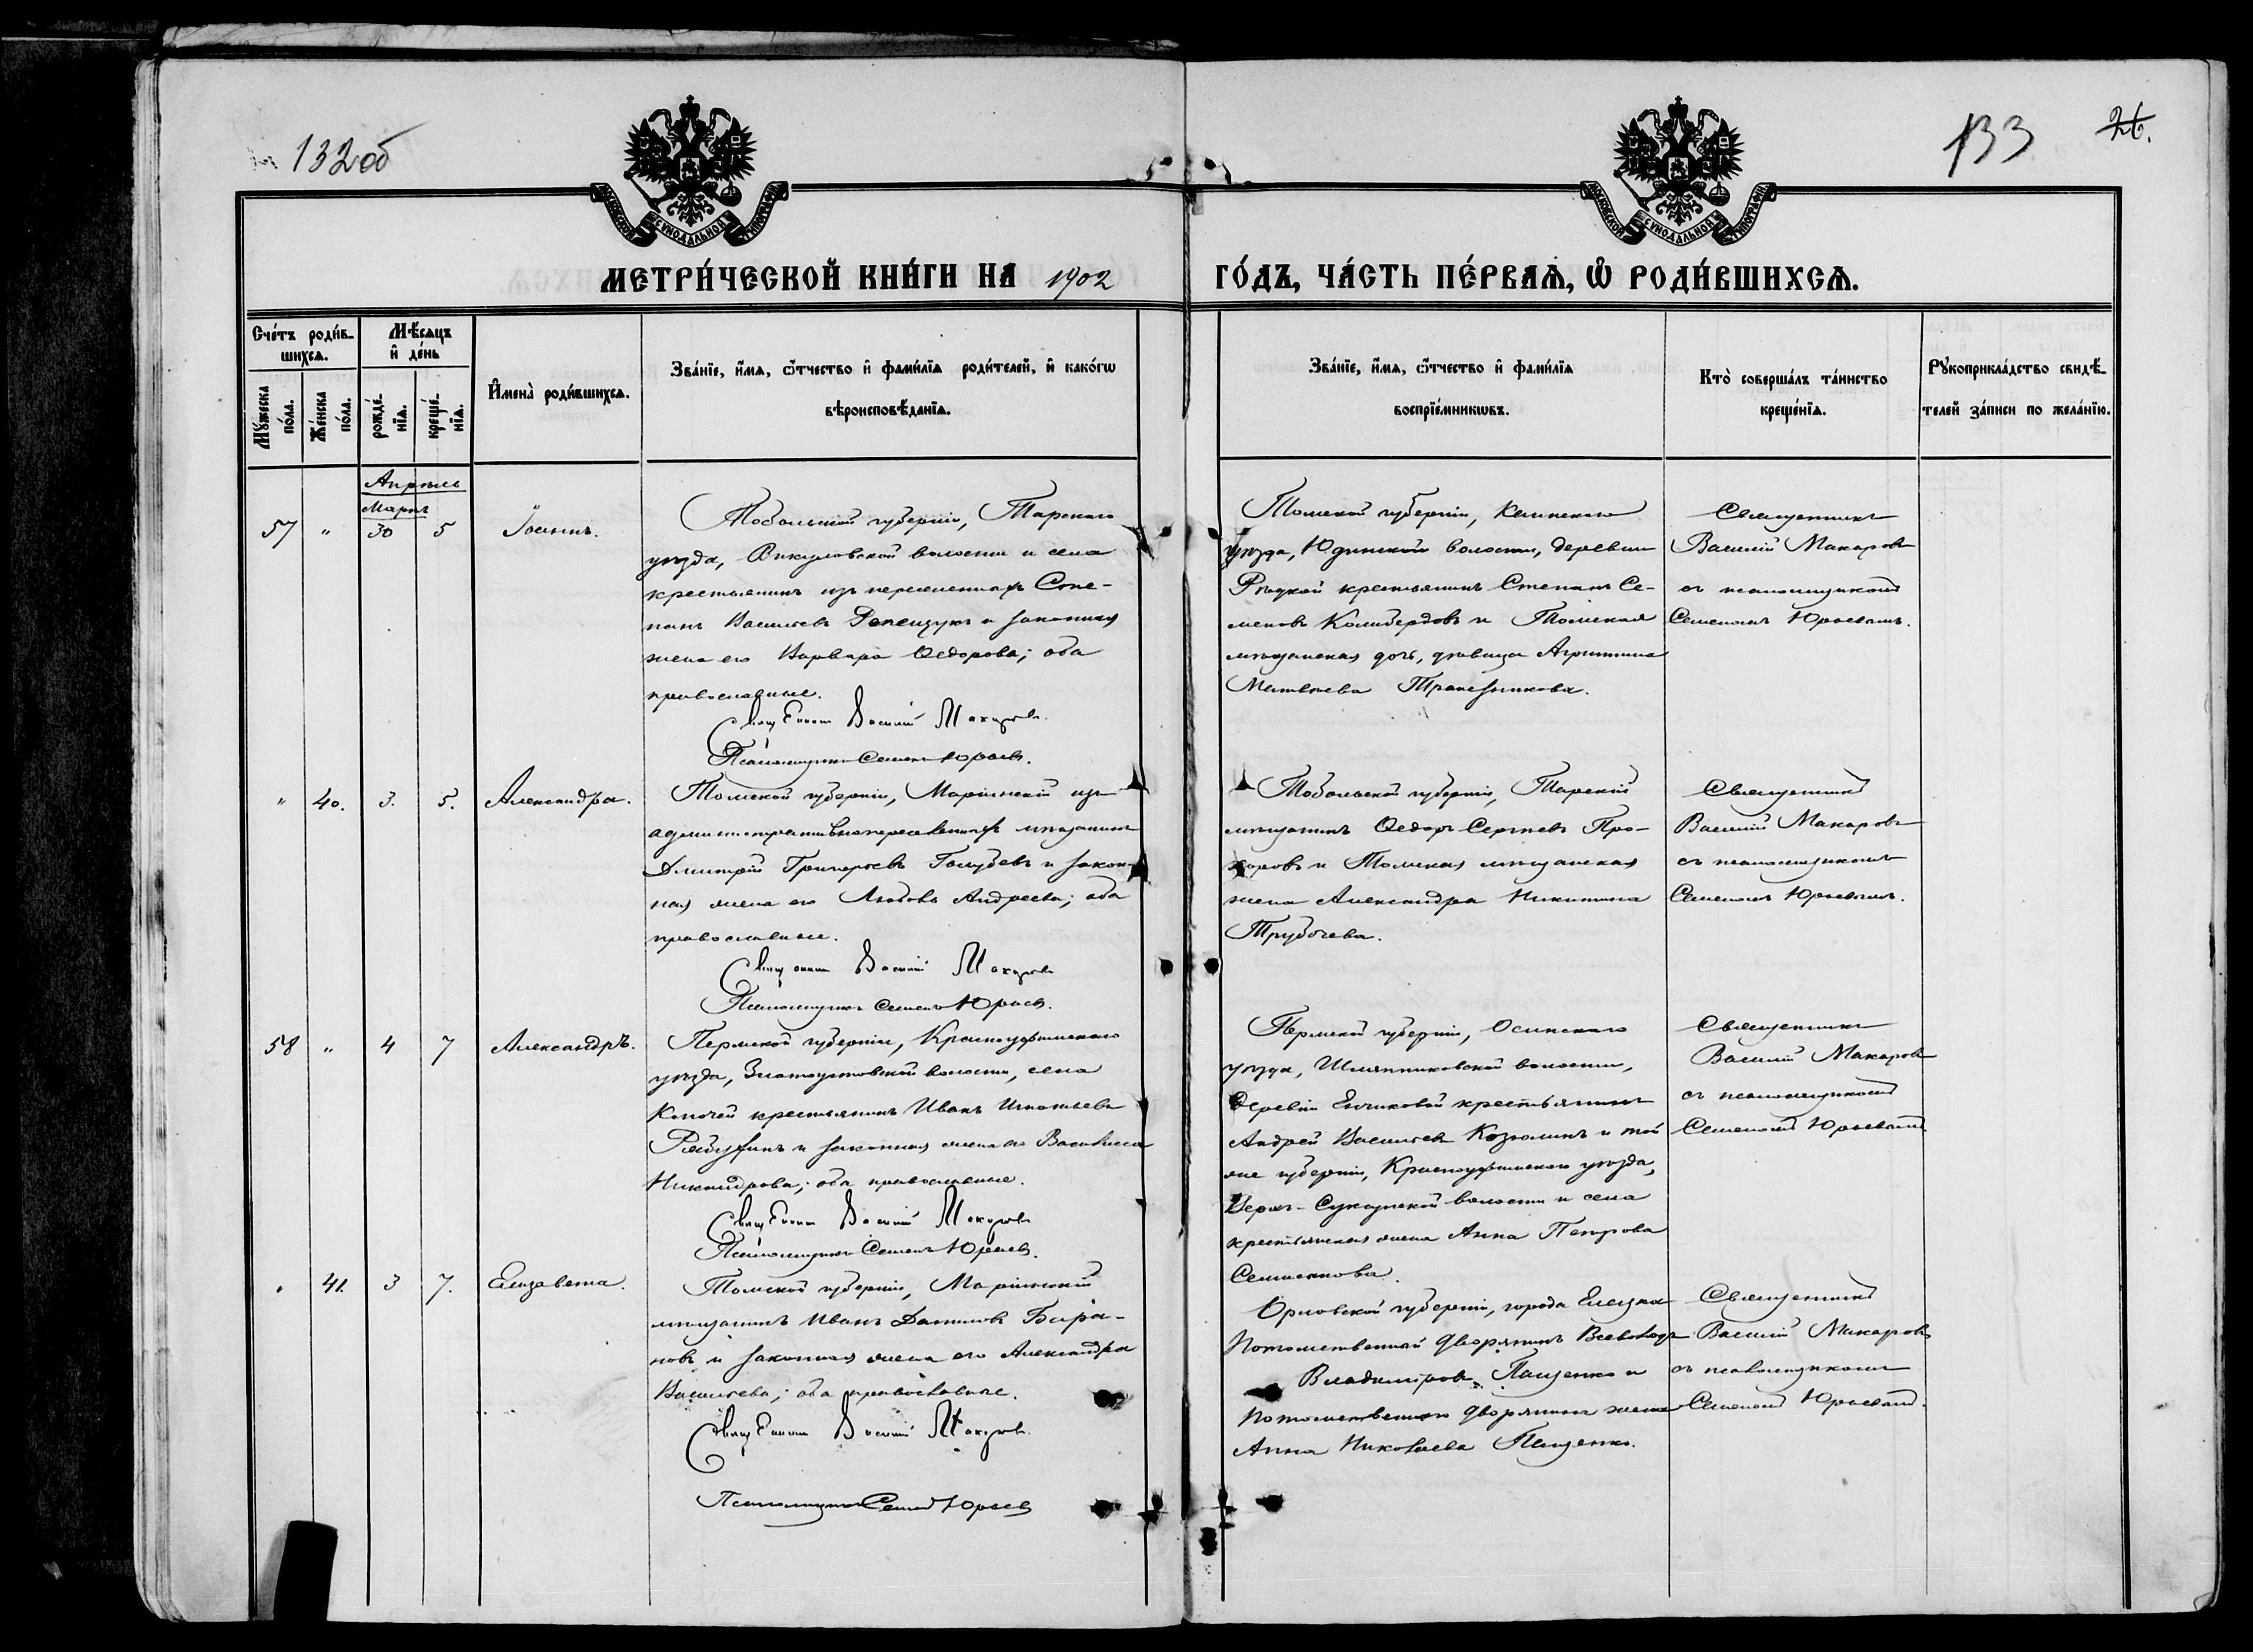 132об
133
26.
МОСКОВСКОЙ СѴНОДАЛЬНОЙ ТИПОГРАФІИ
МОСКОВСКОЙ СѴНОДАЛЬНОЙ ТИПОГРАФІИ
МЕТРИ́ЧЕСКОЙ КНИ́ГИ НА 1902
ГО́ДЪ, ЧА́СТЬ ПЕ́РВАѦ, Ѽ РОДИ́ВШИХСѦ.
Сче́тъ роди́в-
шихсѧ.
Мꙋжеска
по́ла.
Же́нска
по́ла.
Мѣ́сѧцъ
и҆ де́нь
рожде́-
нїѧ.
креще́-
нїѧ.
И҆мена̀ роди́вшихсѧ.
Зва́нїе, и҆́мѧ, ѻ҆́тчество и҆ фами́лїѧ роди́телей, и҆ како́гѡ
вѣроисповѣ́данїѧ.
Зва́нїе, и҆́мѧ, ѻ҆́тчество и҆ фами́лїѧ
воспрїе́мникѡвъ.
Кто̀ соверша́лъ та́инство
креще́нїѧ.
Рꙋкоприкла́дство свидѣ́-
телей за́писи по жела́нїю.
Апрѣль
Мартъ
57 " 30 5 Іоаннъ.
Тобольской губерніи, Тарскаго
уѣзда, Викуловской волости и села
крестьянинъ изъ переселенцевъ Сте-
панъ Васильевъ и законная
жена его Варвара Ѳедорова; оба
православные.
Священникъ Василій Макаровъ.
Псаломщикъ Семенъ Юрьевъ.
Томской губерніи, Каинскаго
уѣзда, Юдинской волости, деревни
крестьянинъ Степанъ Се-
меновъ и Томская
мѣщанская дочь, дѣвица Агриппина
Матвѣева Трапезникова.
Священникъ
Василій Макаровъ
съ псаломщикомъ
Семеномъ Юрьевымъ.
" 40. 3. 5. Александра.
Томской губерніи, Маріинскій изъ
административнопереселенцевъ мѣщанинъ
Димитрій Григорьевъ Голубевъ и закон-
ная жена его Любовь Андреева; оба
православные.
Священникъ Василій Макаровъ
Псаломщикъ Семенъ Юрьевъ.
Тобольской губерніи, Тарскій
мѣщанинъ Ѳедоръ Сергѣевъ Про-
хоровъ и Томская мѣщанская
жена Александра Никитина
Трубачева.
Священникъ
Василій Макаровъ
съ псаломщикомъ
Семеномъ Юрьевымъ.
58 " 4 7 Александръ.
Пермской губерніи, Красноуфимскаго
уѣзда, Златоустовской волости, села
крестьянинъ Иванъ Игнатьевъ
и законная жена его Василисса
Никандрова; оба православные.
Священникъ Василій Макаровъ
Псаломщикъ Семенъ Юрьевъ.
Пермской губерніи, Осинскаго
уѣзда, Шляпниковской волости,
деревни крестьянинъ
Андрей Васильевъ и той
же губерніи, Красноуфимскаго уѣзда,
волости и села
крестьянская жена Анна Петрова
Священникъ
Василій Макаровъ
съ псаломщикомъ
Семеномъ Юрьевымъ.
" 41. 3 7. Елизавета.
Томской губерніи, Маріинскій
мѣщанинъ Иванъ Даниловъ Бара-
новъ и законная жена его Александра
Васильева; оба православные.
Священникъ Василій Макаровъ.
Псаломщикъ Семенъ Юрьевъ
Орловской губерніи, города Ельца
Потомственный дворянинъ Всеволодъ
Владиміровъ Пащенко и
потомственнаго дворянина жена
Анна Николаева Пащенко.
Священникъ
Василій Макаровъ
съ псаломщикомъ
Семеномъ Юрьевымъ.